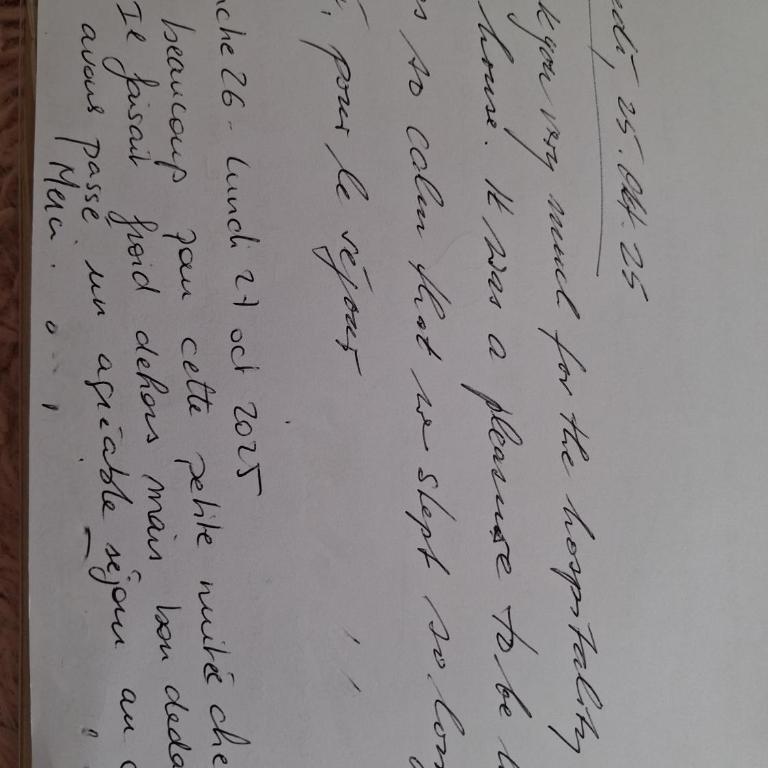 edi, 25. Okt. 25
k you very much for the hospitality
house. It was a pleasure to be
so calm that we slept so long
pour le séjour
che 26 - Lundi 27 oct 2025
beaucoup pour cette petite nuitée che
Il faisait froid dehors mais bon deda
avons passé un agréable séjour au
Merci.